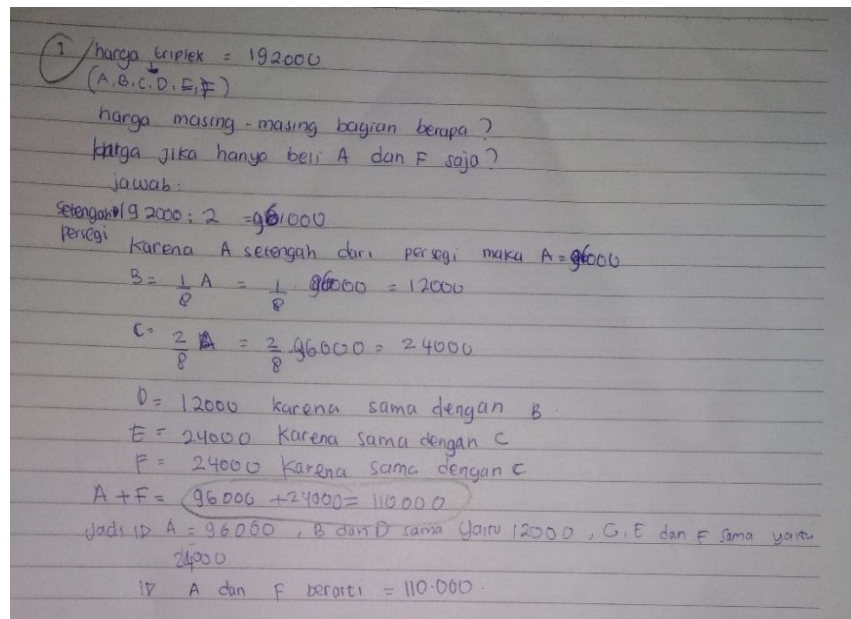 1 harga triplek = 192000
(A, B, C, D, E, F)
harga masing-masing bagian berapa?
harga jika hanya beli A dan F saja?
jawab:
Setengah 192000 : 2 = 96.000
persegi
karena A setengah dari persegi maka A = 96000
B = 1/8 A = 1/8 . 96000 = 12000
C = 2/8 A = 2/8 . 96000 = 24000
D = 12000 karena sama dengan B.
E = 24000 karena sama dengan C
F = 24000 karena sama dengan C
A + F = 96000 + 24000 = 110000
Jadi A = 96000, B dan D sama yaitu 12000, C, E dan F sama yaitu
24000
A dan F berarti = 110.000.